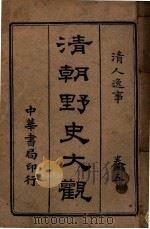 清人逸事
清朝野史大觀
中華書局印行